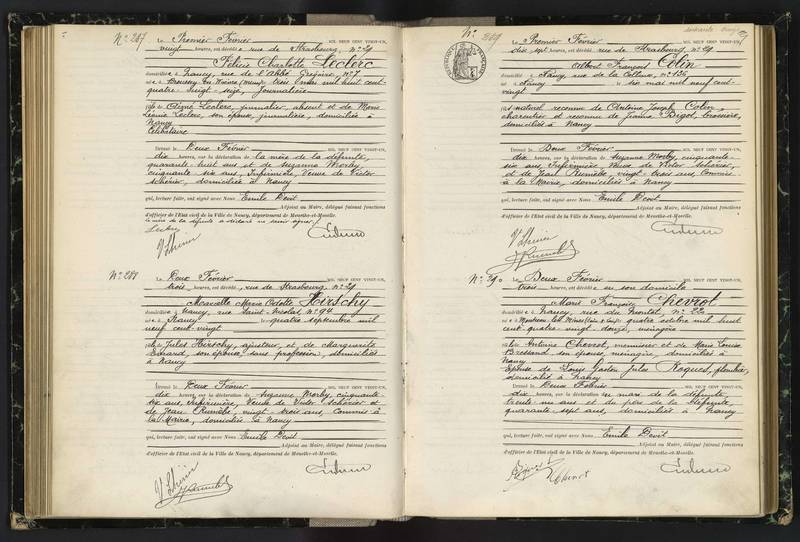 N° 287
Le Premier Février MIL NEUF CENT VINGT-UN,
vingt heures, est décédée rue de Strasbourg, n° 29
Félicie Charlotte Leclerc
domiciliée à Nancy, rue de l'Abbé Grégoire, n° 7
née à trois mars mil huit cent
quatre-vingt-seize, journalière
fille de Aimé Leclerc, journalier, absent et de Marie
son épouse, journalière, domiciliée à
Nancy
Célibataire
Dressé le Deux Février MIL NEUF CENT VINGT-UN,
dix heures, sur la déclaration de la mère de la défunte,
quarante huit ans et de Suzanne Morby,
cinquante six ans, Infirmière, Veuve de Victor
domiciliées à Nancy
qui, lecture faite, ont signé avec Nous Emile Devit
Adjoint au Maire, délégué faisant fonctions
d'officier de l'Etat civil de la Ville de Nancy, département de Meurthe-et-Moselle.
la mère de la défunte a déclaré ne savoir signer
N° 288
Le Deux Février MIL NEUF CENT VINGT-UN,
trois heures, est décédée rue de Strasbourg, n° 29
Marcelle Marie Odette Hirschy
domiciliée à Nancy, rue Saint-Nicolas, n° 94
née à Nancy le quatre septembre mil
neuf cent vingt
fille de Jules Hirschy, ajusteur, et de Marguerite
son épouse, sans profession, domiciliés
à Nancy
Dressé le Deux Février MIL NEUF CENT VINGT-UN,
dix heures, sur la déclaration de Suzanne Morby, cinquante-
six ans, Infirmière, Veuve de Victor et
de Jean vingt-trois ans, Commis à
la Mairie, domiciliés à Nancy
qui, lecture faite, ont signé avec Nous Emile Devit
Adjoint au Maire, délégué faisant fonctions
d'officier de l'Etat civil de la Ville de Nancy, département de Meurthe-et-Moselle.
N° 289
Le Premier Février MIL NEUF CENT VINGT-UN,
dix sept heures, est décédé rue de Strasbourg, n° 29
Albert François Colin
domicilié à Nancy, rue de la Colline, n° 126
né à Nancy le six mai mil neuf cent-
vingt
fils naturel reconnu de Antoine Joseph Colin,
charpentier et reconnu de Jeanne Bigot, brossière,
domiciliés à Nancy
Dressé le Deux Février MIL NEUF CENT VINGT-UN,
dix heures, sur la déclaration de Suzanne Morby, cinquante-
six ans, Infirmière, Veuve de Victor
et de Jean vingt-trois ans, Commis
à la Mairie, domiciliés à Nancy
qui, lecture faite, ont signé avec Nous Emile Devit
Adjoint au Maire, délégué faisant fonctions
d'officier de l'Etat civil de la Ville de Nancy, département de Meurthe-et-Moselle.
N° 290
Le Deux Février MIL NEUF CENT VINGT-UN,
trois heures, est décédée en son domicile
Marie Françoise Chevrot
domiciliée à Nancy, rue du Montet, n° 22
née à quatre octobre mil huit
cent-quatre-vingt-douze, ménagère
fille de Antoine Chevrot, menuisier et de Marie Louise
Bressand son épouse, ménagère, domiciliés à
Nancy
Epouse de Louis Gaston Jules Roques, plombier,
domicilié à Nancy
Dressé le Deux Février MIL NEUF CENT VINGT-UN,
dix heures, sur la déclaration du mari de la défunte,
trente ans et du père de la défunte,
quarante-sept ans, domiciliés à Nancy
qui, lecture faite, ont signé avec Nous Emile Devit
Adjoint au Maire, délégué faisant fonctions
d'officier de l'Etat civil de la Ville de Nancy, département de Meurthe-et-Moselle.
Chevrot